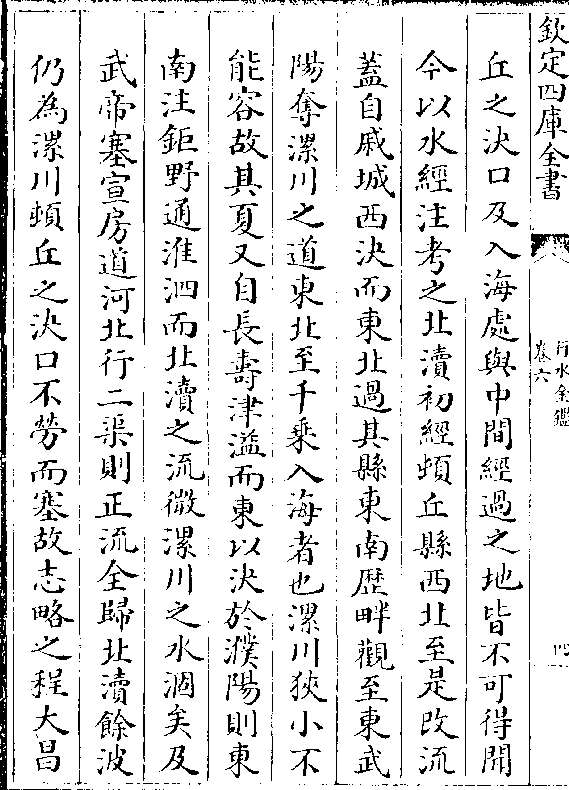 欽定四庫全書
行水金鑑
卷六
四
丘之決口及入海處與中間經過之地皆不可得聞
今以水經注考之北瀆初經頓丘縣西北至是改流
蓋自戚城西決而東北過其縣東南歴畔觀至東武
陽奪漯川之道東北至千乗入海者也漯川狹小不
能容故其夏又自長壽津溢而東以決於濮陽則東
南注鉅野通淮泗而北瀆之流微漯川之水涸矣及
武帝塞宣房道河北行二渠則正流全歸北瀆餘波
仍為漯川頓丘之決口不勞而塞故志略之程大昌